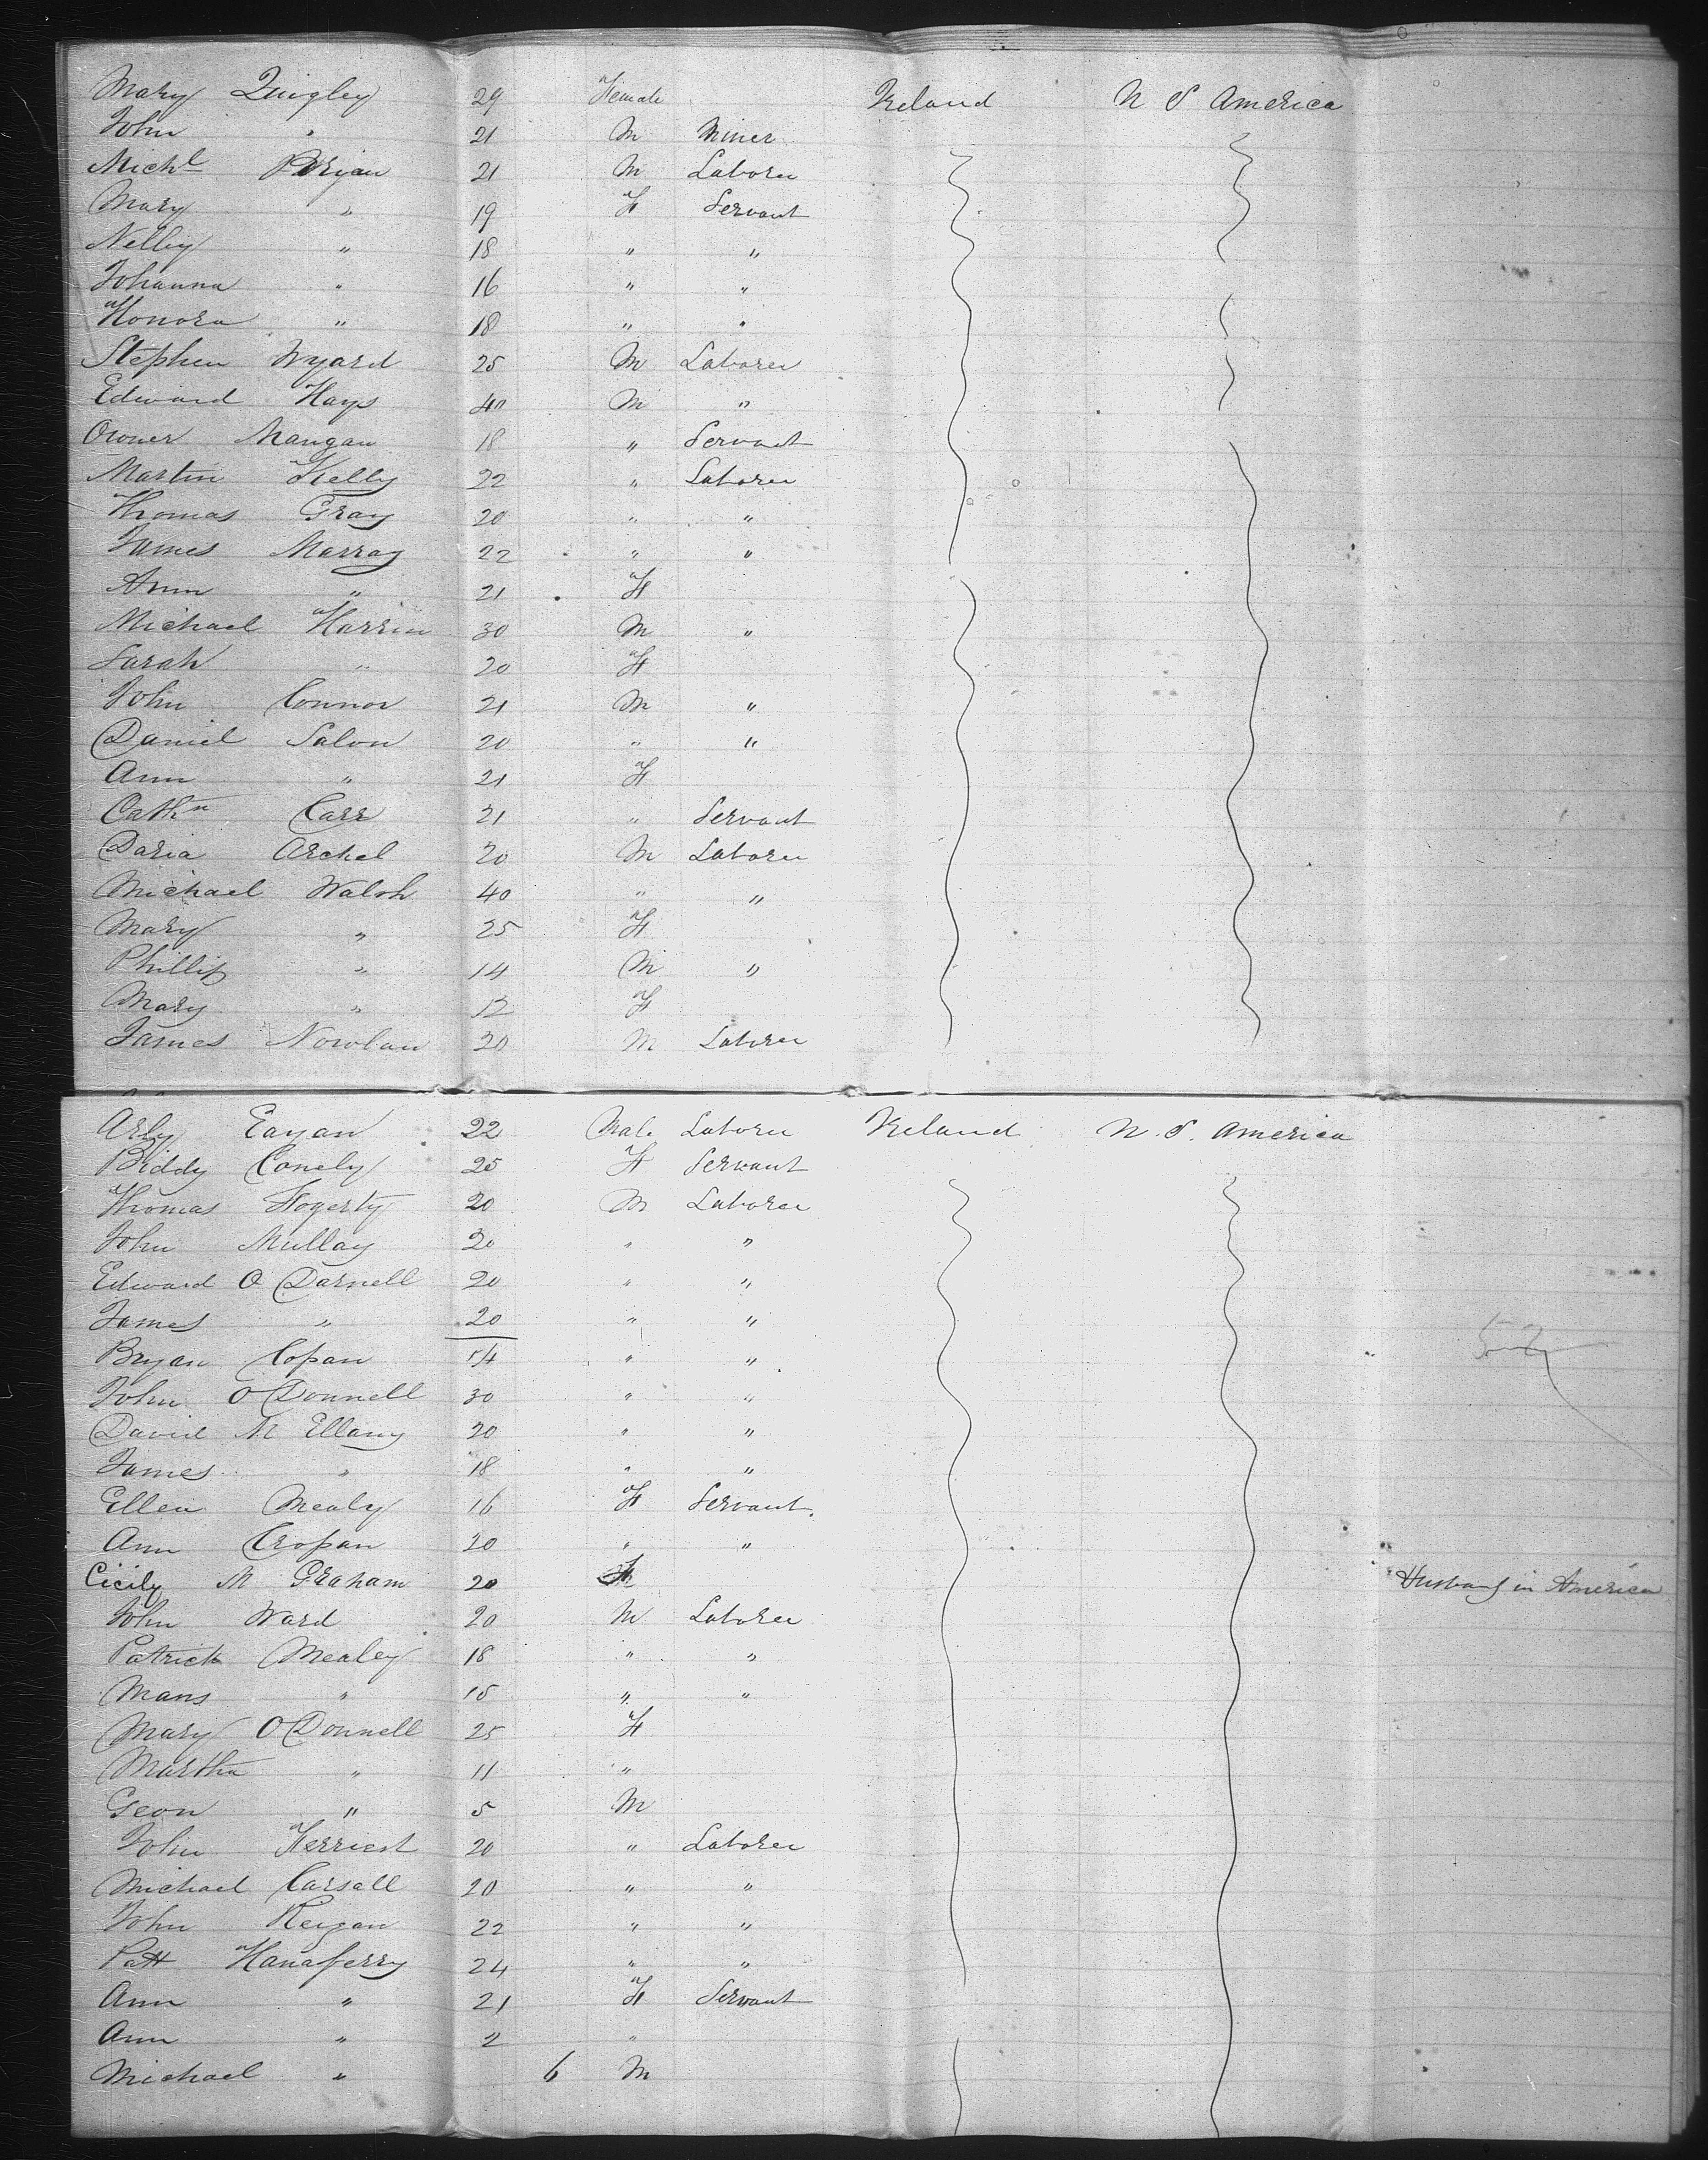 Mary Quigley 29 Female Ireland N S America
John " 21 M Miner
Michl Brijan 21 M Laborer
Mary " 19 F Servant
Nelly " 18 " "
Johanna " 16 " "
Honora " 18 " "
Stephen Wyard 25 M Laborer
Edward Hays 40 M "
Owner Mangan 18 " Servant
Martin Kelly 22 " Laborer
Thomas Gray 20 " "
James Marray 22 " "
Ann " 21 F
Michael Harrin 30 M "
Sarah " 20 F
John Connor 21 M "
Daniel Salon 20 " "
Ann " 21 F
Cathn Carr 21 " Servant
Daria Archel 20 M Laborer
Michael Walsh 40 " "
Mary " 25 F
Phillip " 14 M "
Mary " 12 F
James Nowlan 20 M Laborer
Arly Eagan 22 Male Laborer Ireland N. S. America
Biddy Conely 25 F Servant
Thomas Fogerty 20 M Laborer
John Mullay 20 " "
Edward O Darnell 20 " "
James " 20 " "
Bryan Copan 14 " "
John O Donnell 30 " "
David M Ellany 20 " "
James " 18 " "
Ellen Mealy 16 F Servant.
Ann Cropan 20 " "
Cicily M Graham 20 F Husband in America
John Ward 20 M Laborer
Patrick Mealey 18 " "
Mans " 15 " "
Mary O Donnell 25 F
Martha " 11 "
Geon " 5 M
John Ferriest 20 " Laborer
Michael Carsall 20 " "
John Reygan 22 " "
Patt Hanaferry 24 " "
Ann " 21 F Servant
Ann " 2 "
Michael " 6 M